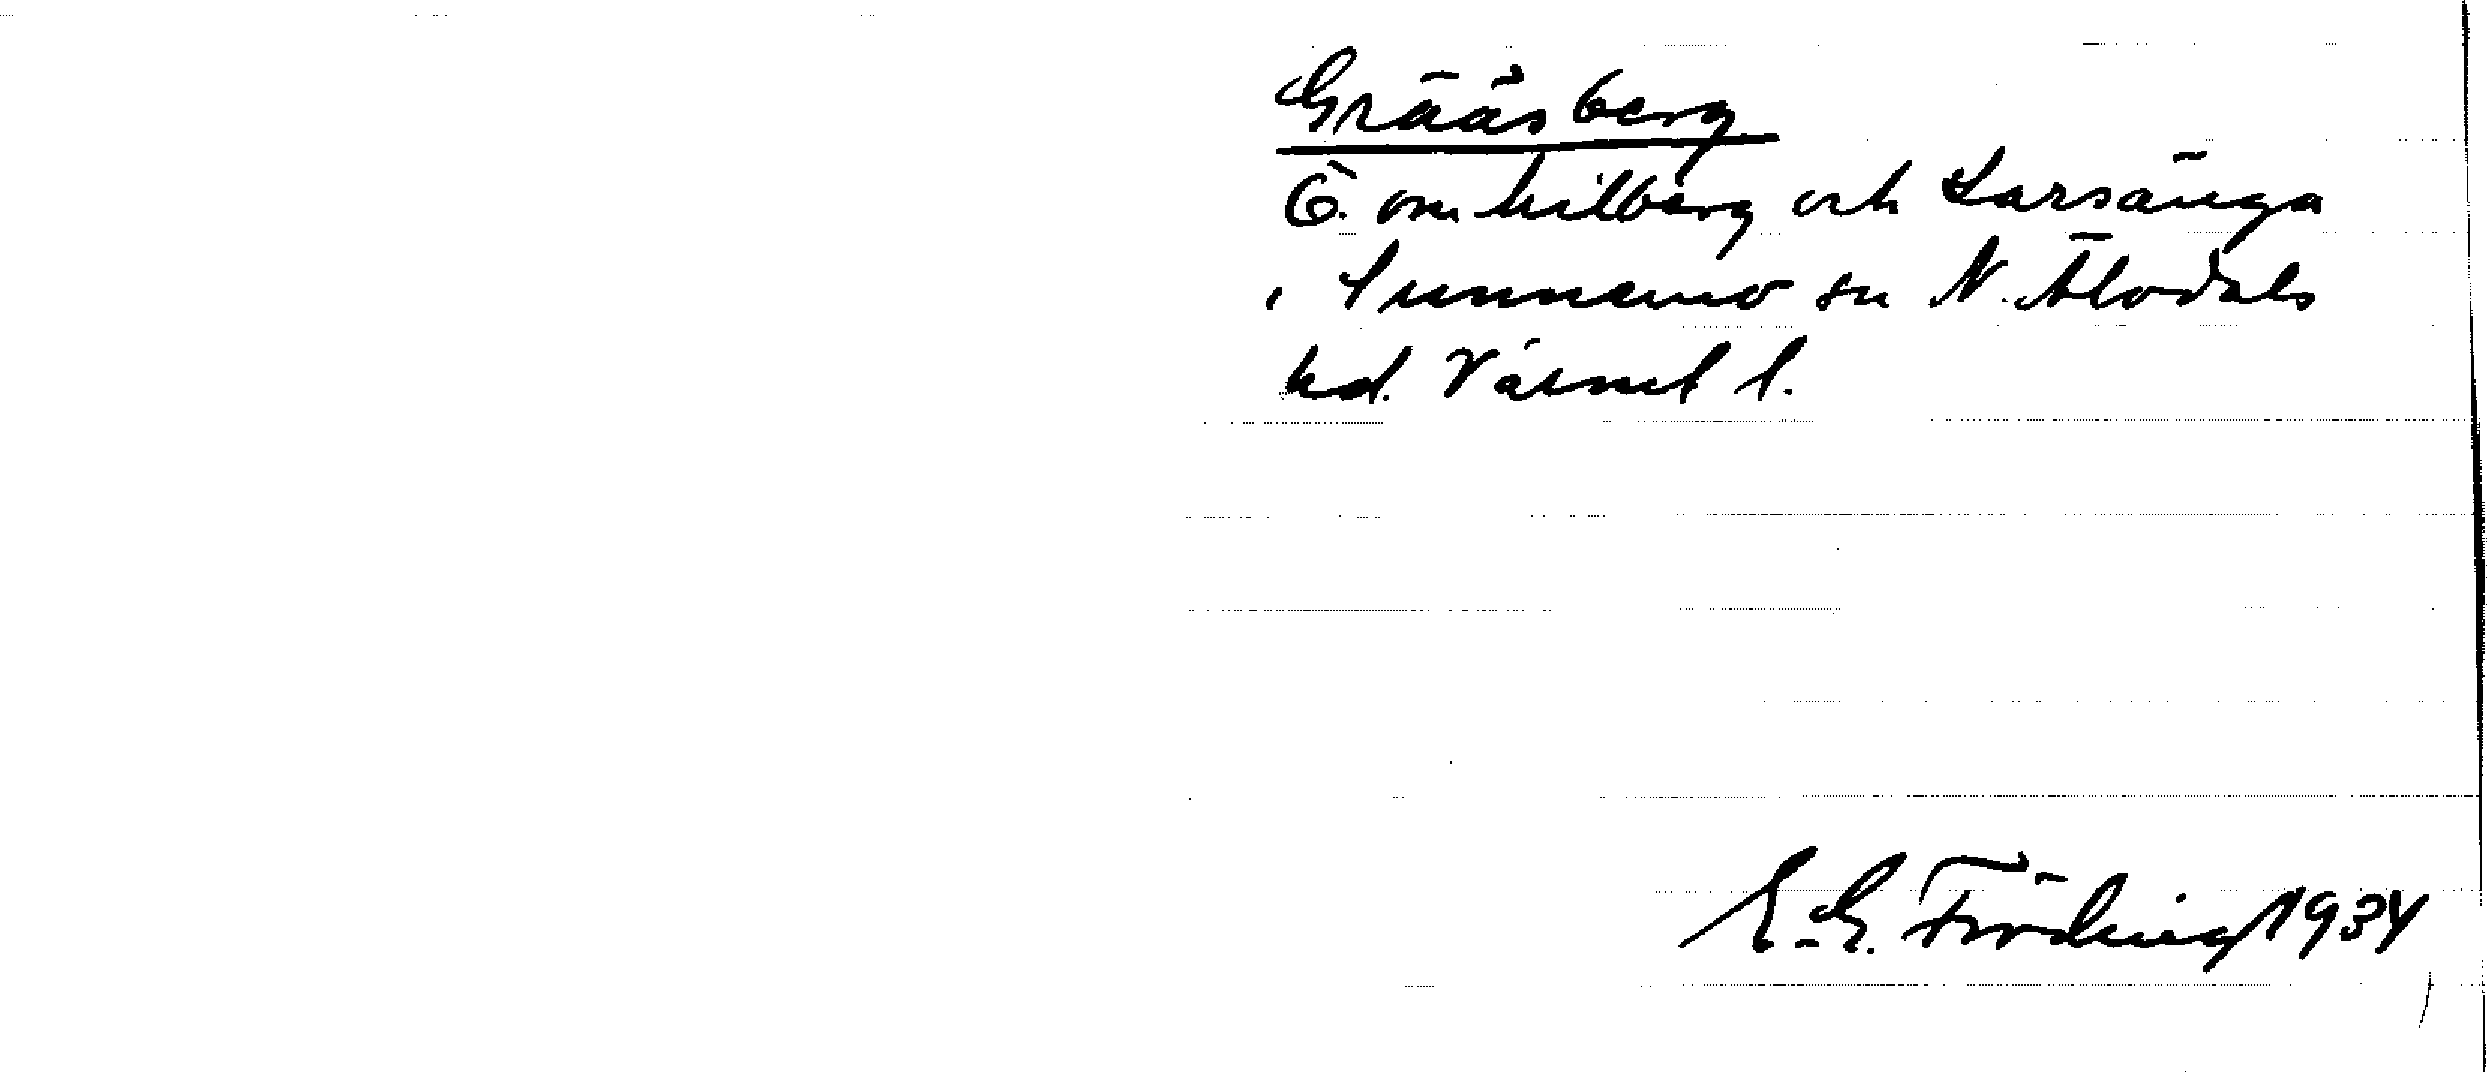 Grääsberg
Ö. om Milberg och Larsänga
i Sunnemo sn N. Älvdals
hd. Värml l.
E-G. Fröding 1934